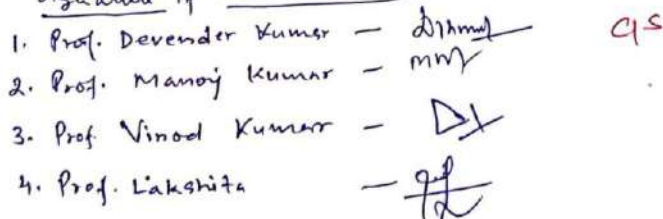 1. Prof. Devender Kumar -
2. Prof. Manoj Kumar -
3. Prof Vinod Kumar -
4. Prof. Lakshita -